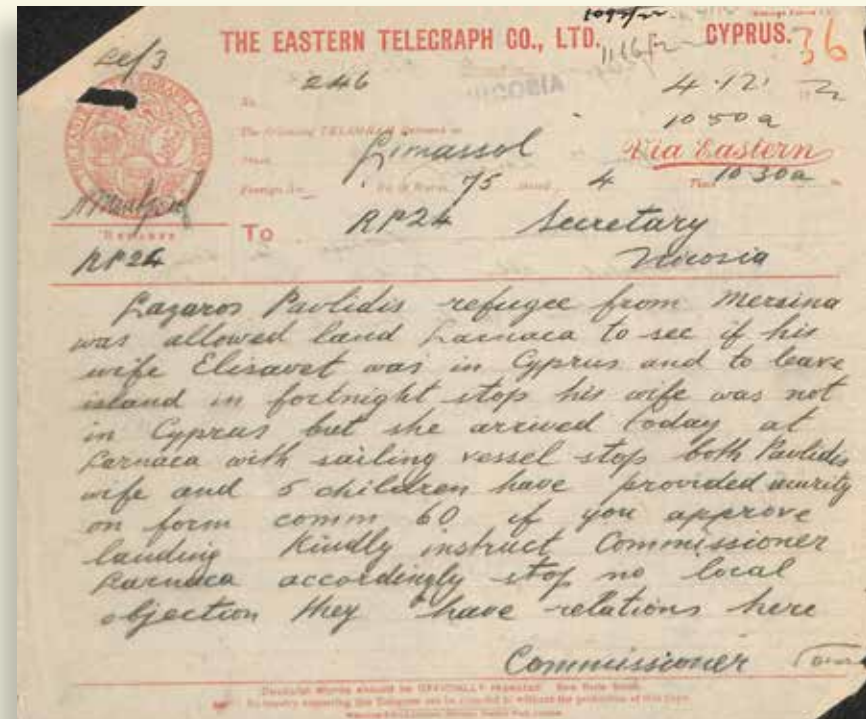 1092/22
THE EASTERN TELEGRAPH CO., LTD. CYPRUS. 36
1166/22
246
NICOSIA
4.12. 22
10 50 a
The following TELEGRAM Received at
From Limassol Via Eastern
Foreign No. No. of Words 75 4 Time 10 30 a m.
To RP24 Secretary
Nicosia
RP24
Lazaros Pavlidis refugee from Mersina
was allowed land Larnaca to see if his
wife Elisavet was in Cyprus and to leave
island in fortnight stop his wife was not
in Cyprus but she arrived today at
Larnaca with sailing vessel stop both Pavlidis
wife and 5 children have provided security
on form comm 60 if you approve
landing Kindly instruct Commissioner
Larnaca accordingly stop no local
objection they have relations here
Commissioner
Doubtful Words should be OFFICIALLY repeated. See Rule Book.
No inquiry respecting this Telegram can be attended to without the production of this Copy.